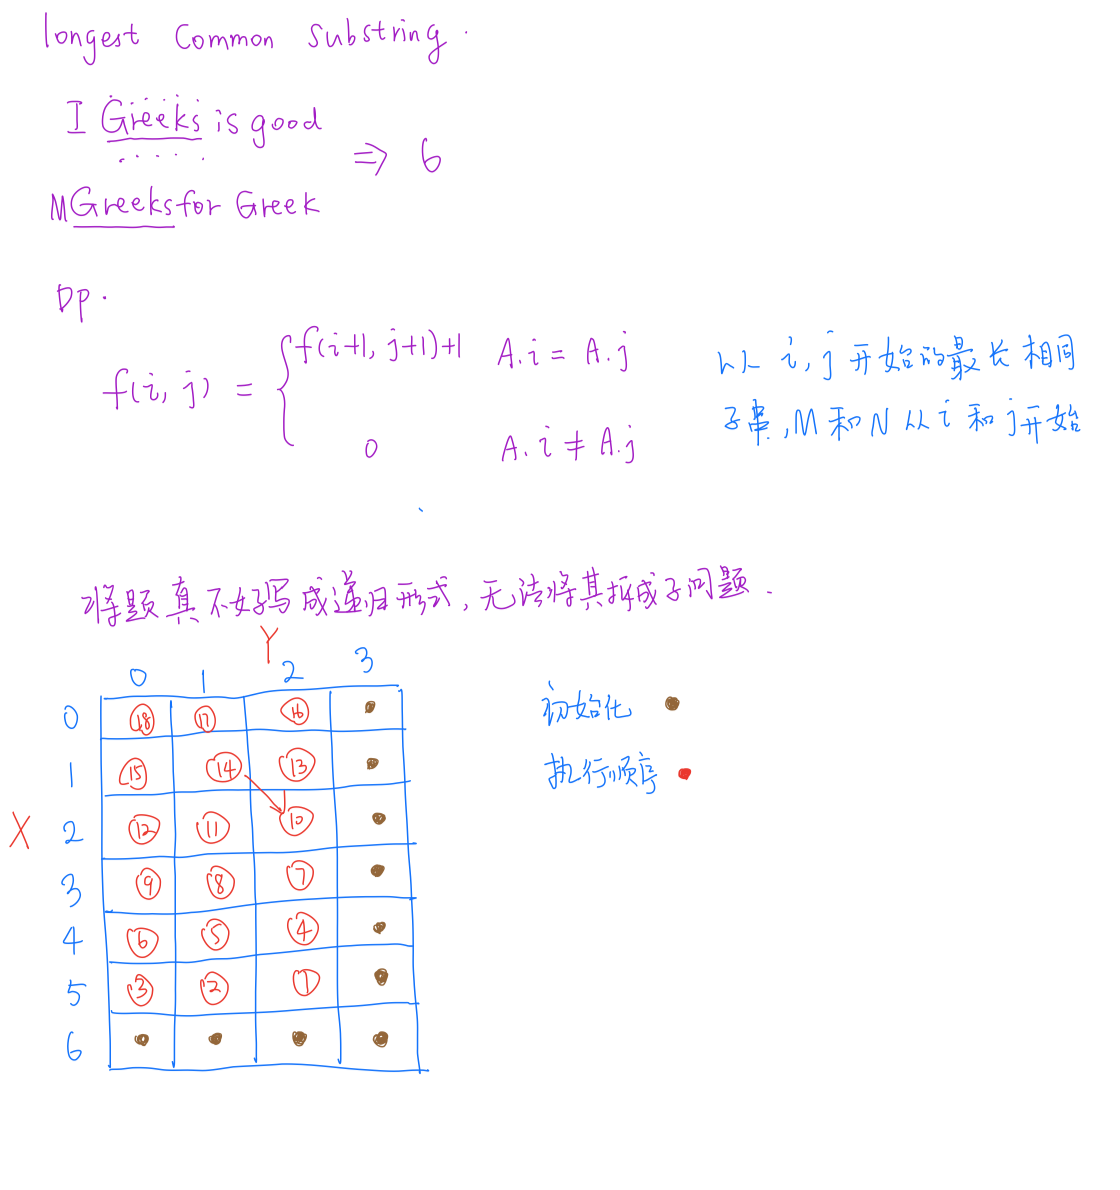 longest Common Substring.
I Greeks is good
⇒ 6
MGreeksfor Greek
Dp.
f(i+1, j+1)+1 A.i = A.j
f(i, j) =
0 A.i ≠ A.j
以从 i, j 开始的最长相同
子串, M 和 N 从 i 和 j 开始
将题真不好写成递归形式, 无法将其拆成子问题.
Y
0 1 2 3
0 18 17 16
1 15 14 13
X 2 12 11 10
3 9 8 7
4 6 5 4
5 3 2 1
6
初始化
执行顺序